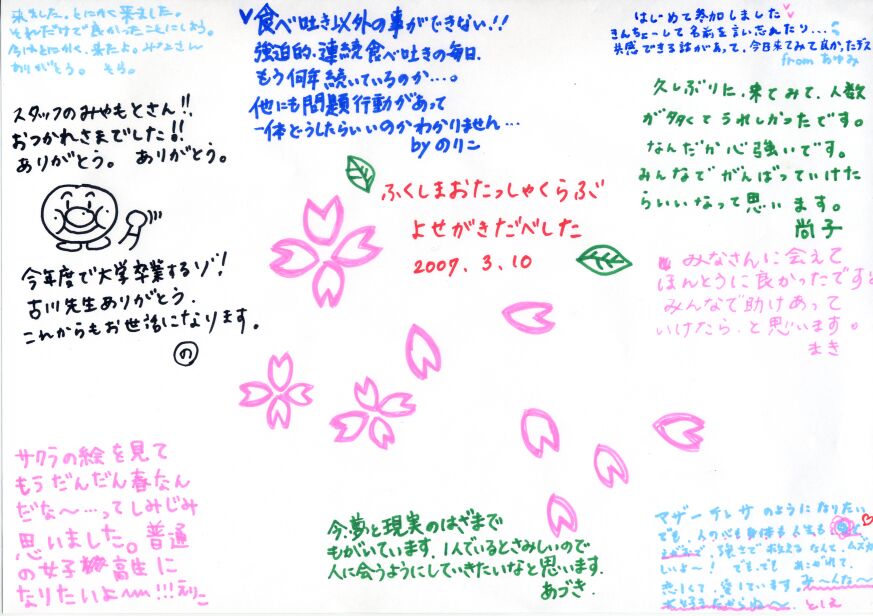 来ました。とにかく来ました。
それだけで良かったことにしよう。
ありがとう。
♥食べ吐き以外の事ができない!!
強迫的、連続食べ吐きの毎日、
もう何年続いているのか…。
他にも問題行動があって
一体どうしたらいいのかわかりません…
by のりこ
はじめて参加しました
きんちょーして名前を言い忘れたり…
共感できる話があって、今日来てみて良かったデス
from あゆみ
久しぶりに、来てみて、人数
が多くてうれしかったです。
なんだか心強いです。
みんなでがんばっていけた
らいいなって思います。
尚子
スタッフのみやもとさん!!
おつかれさまでした!!
ありがとう。 ありがとう。
今年度で大学卒業するゾ!
古川先生ありがとう.
これからもお世話になります。
の
ふくしまおたっしゃくらぶご
よせがきだべした
2007. 3. 10
みなさんに会えて
ほんとうに良かったです
みんなで助けあって
いけたら、と思います。
まき
サクラの絵を見て
もうだんだん春なん
だな〜…ってしみじみ
思いました。普通
の女子高生に
なりたいよ〜!!!えりこ
今、夢と現実のはざまで
もがいています。1人でいるとさみしいので
人に会うようにしていきたいなと思います.
あづき.
マザーテレサのようになりたい
でも、人の心も身体も人生も
救えるなんて、ムズカ
いよ〜! でもでも あこがれて、
恋しくて、愛しています。み〜んな〜
大好きだからね〜 としえ